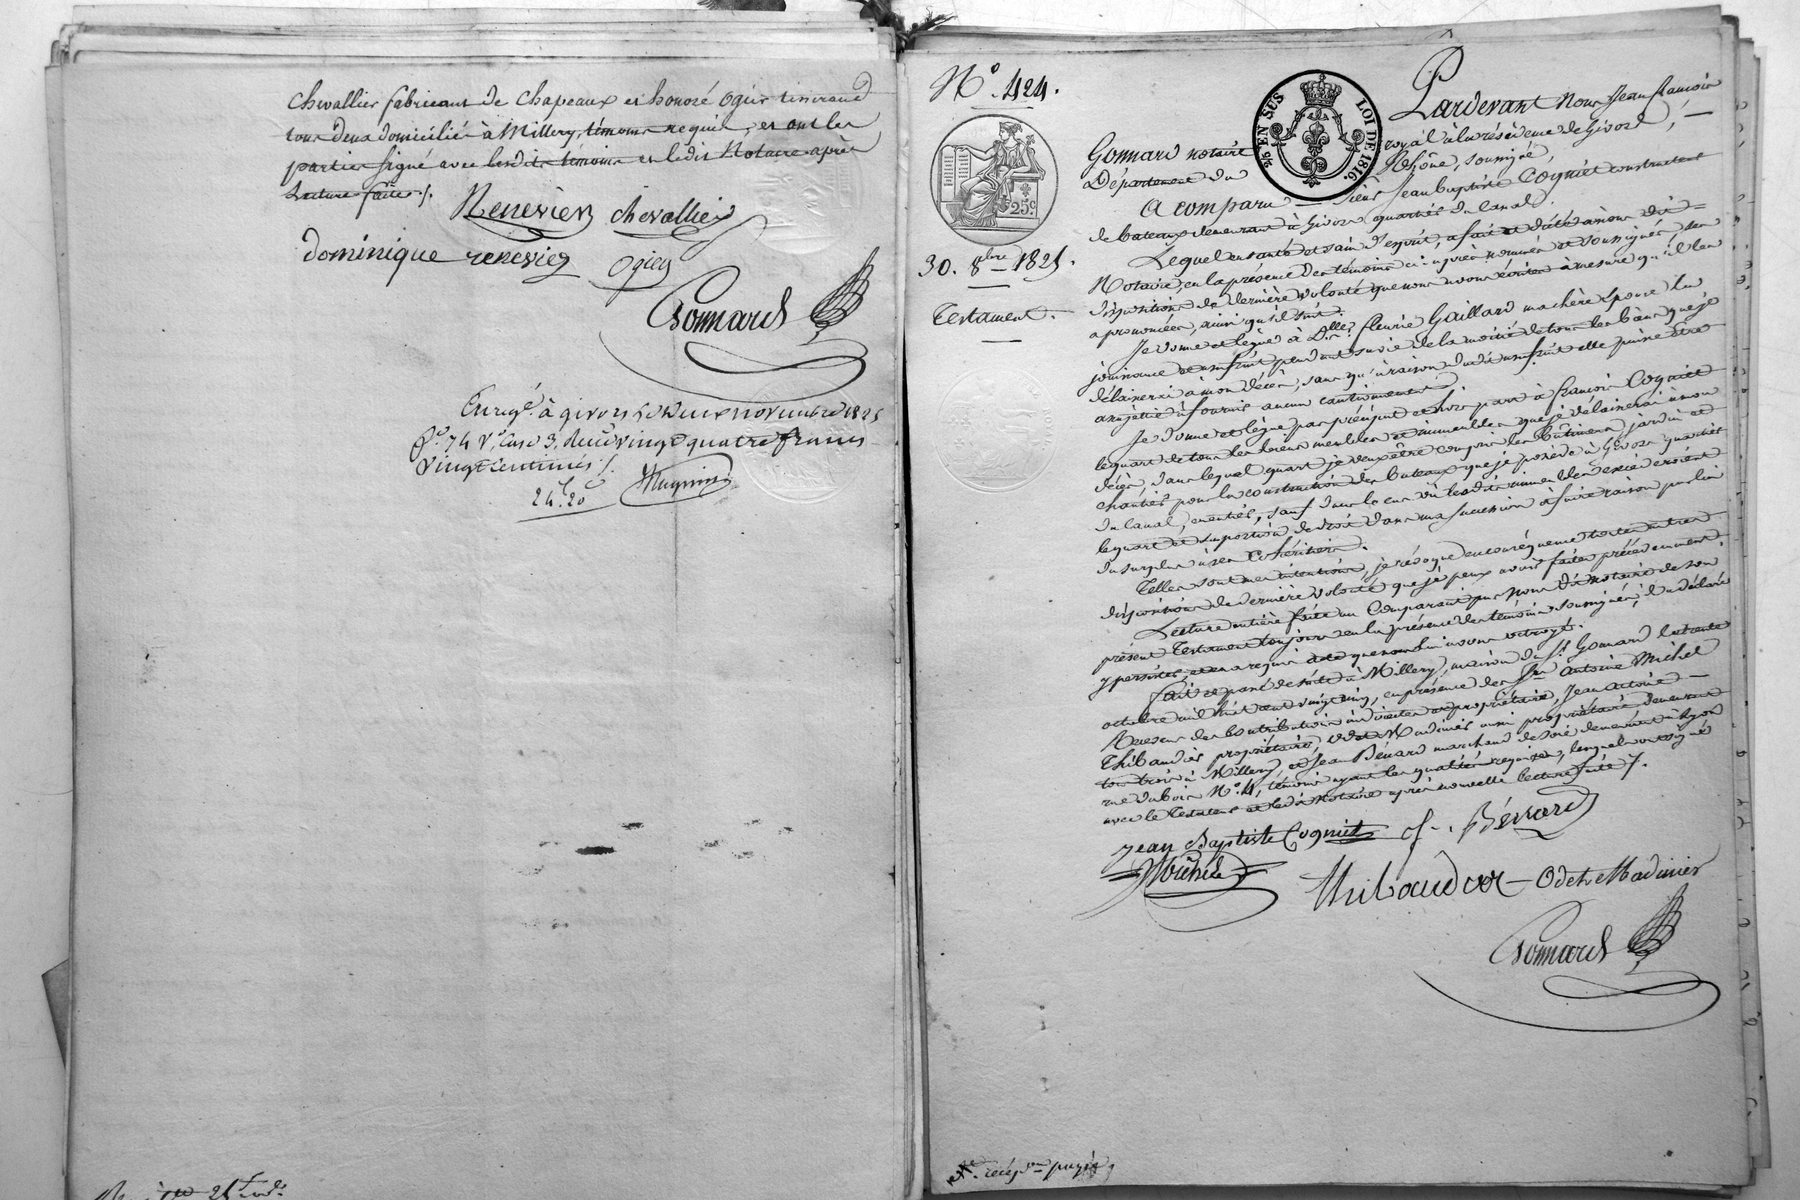 chevallier fabricant de chapeaux et honoré Ogier
tous deux domiciliés à Millery, témoins requis, et ont les
parties signé avec lesdits témoins et ledit Notaire après
Lecture faite ./.
Renevier chevallier
Dominique renevier Ogier
Gonnard
Enregé. à givors le deux novembre 1825
fo. 74 Vo. Case 3. Reçu vingt quatre francs
vingt centimes ./.
24f. 20c
No. 424.
25c.
30. 8bre 1825.
Testament.
25c EN SUS LOI DE 1816.
Pardevant Nous Jean françois
Gonnard notaire royal à la résidence de Givors,
Département du Rhône, soussigné,
A comparu Sieur Jean Baptiste Cogniet constructeur
de bateaux demeurant à Givors quartier du Canal.
Lequel en santé et sain d'esprit, a fait et dicté à nous dit
Notaire, en la présence des témoins ci-après nommés et soussignés ses
dispositions de dernière volonté que nous avons écrites à mesure qu'il les
a prononcées, ainsi qu'il suit.
Je donne et lègue à Dlle. fleurie Gaillard ma chère épouse la
jouissance et usufruit pendant sa vie de la moitié de tous les biens que je
délaisserai à mon décès, sans qu'à raison dudit usufruit elle puisse être
assujettie à fournir aucun cautionnement.
Je donne et lègue par préciput et hors part à françois Cogniet
le quart de tous les biens meubles et immeubles que je délaisserai à mon
décès, dans lequel quart je veux être compris les bâtimens, jardin et
chantier pour la construction des bateaux que je possède à Givors quartier
du Canal, en entier, sauf dans le cas où lesdits immeubles excéderoient
le quart et sa portion de droit dans ma succession à faire raison par lui
du surplus à ses Cohéritiers.
Telles sont mes intentions, je révoque en conséquence toutes autres
dispositions de dernière volonté que je peux avoir faites précédemment.
Lecture entière faite au Comparant par Nous dit notaire de son
présent Testament toujours en la présence des témoins soussignés, il a déclaré
y persister, et en a requis acte que nous lui avons octroyé.
fait et passé de suite à Millery, maison du Sr. Gonnard le trente
octobre mil huit cent vingt cinq, en présence des Srs. Antoine Michel
Receveur des Contributions indirectes et propriétaire, Jean Antoine
Thibaudier propriétaire, Odet Madinier aussi propriétaire demeurant
tous trois à Millery, et Jean Bénard marchand de soie demeurant à Lyon
rue Dubois No. 4, témoins ayant les qualités requises, lesquels ont signé
avec le Testateur et ledit Notaire après nouvelle lecture faite ./.
Jean Baptiste Cogniet J. Bénard
Michel Thibaudier Odet Madinier
Gonnard